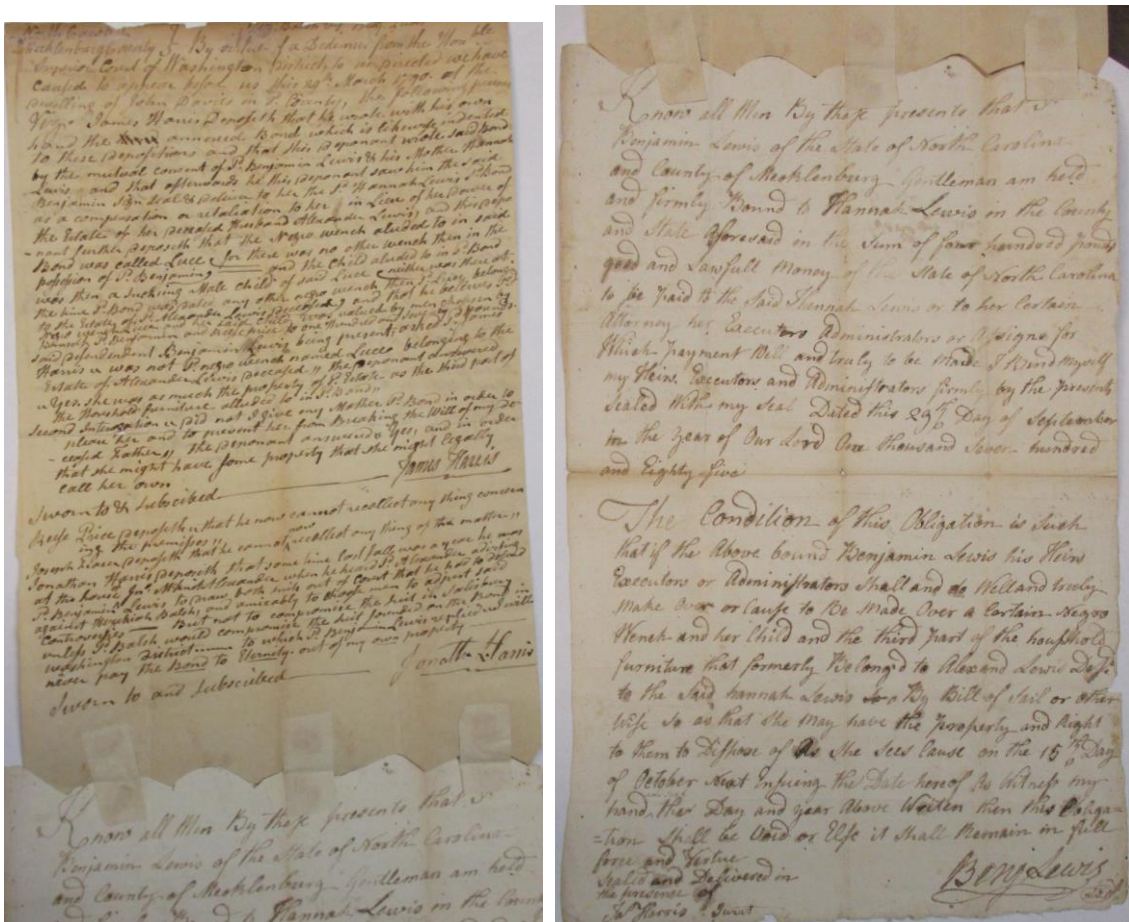 Mecklenburg County By virtue of a Dedimus from the Hon ble
Superior Court of Washington to us directed we have
caused to appear before us this 29th March 1790 at the
dwelling of John Davis in Sd. County, the following persons
Vizt James Harris Deposeth that he wrote with his own
hand the annexed Bond which is likewise indented
to these Depositions and that this Deponant wrote said Bond
by the mutual consent of Sd. Benjamin Lewis & his Mother Hannah
Lewis and that afterwards he this deponant saw him the said
Benjamin Sign Seal & deliver to her the Sd. Hannah Lewis Sd. Bond
as a compensation or retaliation to her in Lieu of her Dower of
the Estate of her deceased Husband Alexander Lewis, and this depo
-nant further deposeth that the Negro wench aluded to in said
Bond was called Luce for there was no other wench then in the
possession of Sd. Benjamin and the Child aluded to in Sd. Bond
was then a Sucking Male child of said Luce neither was there at
the time Sd. Bond was Dated any other negro wench then
to the Estate of Sd. Alexander Lewis deceased, and that he believes Sd.
Negro wench Luce and her said Child were valued by men chosen
Sd. Benjamin and to one hundred and seventy pounds
said defendendent Benjamin Lewis being present, asked Sd. James
Harris was not Sd. negro wench named Luce belonging to the
Estate of Alexander Lewis deceased,, the deponant answered
Yes, she was as much the property of Sd. Estate as the third part of
the Household furniture alluded to in Sd. Bond,,
Second Interogation did not I give my Mother Sd. Bond in order to
please her and to prevent her from Breaking the Will of my de-
-ceased Father,, The deponant answered Yes, and in order
that she might have some property that she might legally
call her own
James Harris
Sworn to & Subscibed
Reese Price deposeth that he now cannot recollect any thing concern
ing the premises,,
Joseph deposeth that he cannot now recollect any thing of the matter,,
Jonathan Harris deposeth that some time last fall was a year he was
at the house when he heard Sd. Alexander advising
Sd. Benjamin Lewis to draw both suits out of Court that he had to
against Hezekiah Balch, and amicably to choose men to adjust said
controversies But not to compromise the suit in Salisbury
unless Sd. Balch would compromise the suit founded on the Bond in
Washington District to which Sd. Benjamin Lewis
never pay the Bond to Eternity out of my own property
Jonath Harris
Sworn to and Subscribed
Know all Men By these presents that I
Benjamin Lewis of the State of North Carolina
and County of Mecklenburg Gentleman am held
and firmly Bound to Hannah Lewis in the County
Know all Men By these presents that I
Benjamin Lewis of the State of North Carolina
and County of Mecklenburg Gentleman am held
and firmly Bound to Hannah Lewis in the County
and State Aforesaid in the Sum of four hundred Pounds
good and Lawfull Money of the State of North Carolina
to be Paid to the Said Hannah Lewis or to her Certain
Attorney her Executors Administrators or Assigns for
Which Payment Well and truly to be Made I Bind Myself
my Heirs, Executors and Administrators firmly by the Presents
Sealed With my Seal Dated this 29th Day of September
in the Year of Our Lord One thousand Seven hundred
and Eighty five
The Condition of this Obligation is Such
that if the Above bound Benjamin Lewis his Heirs
Executors or Administrators Shall and do Well and truly
Make Over or Cause to Be Made Over a Certain Negro
Wench and her Child and the third Part of the houshold
furniture that formerly Belongd to Alexand Lewis Desd.
to the Said hannah Lewis By Bill of Sail or other
Wise So as that She May have the Property and Right
to them to Dispose of As She Sees Cause on the 15th Day
of October Next Ensuing the Date hereof As Witness my
hand the Day and year Above Writen then this Obliga=
=tion Shall be Void or Else it Shall Remain in full
force and Virtue
Sealed and Delivered in
the presence of
Jas. Harris Jurat
Benj Lewis
Seal